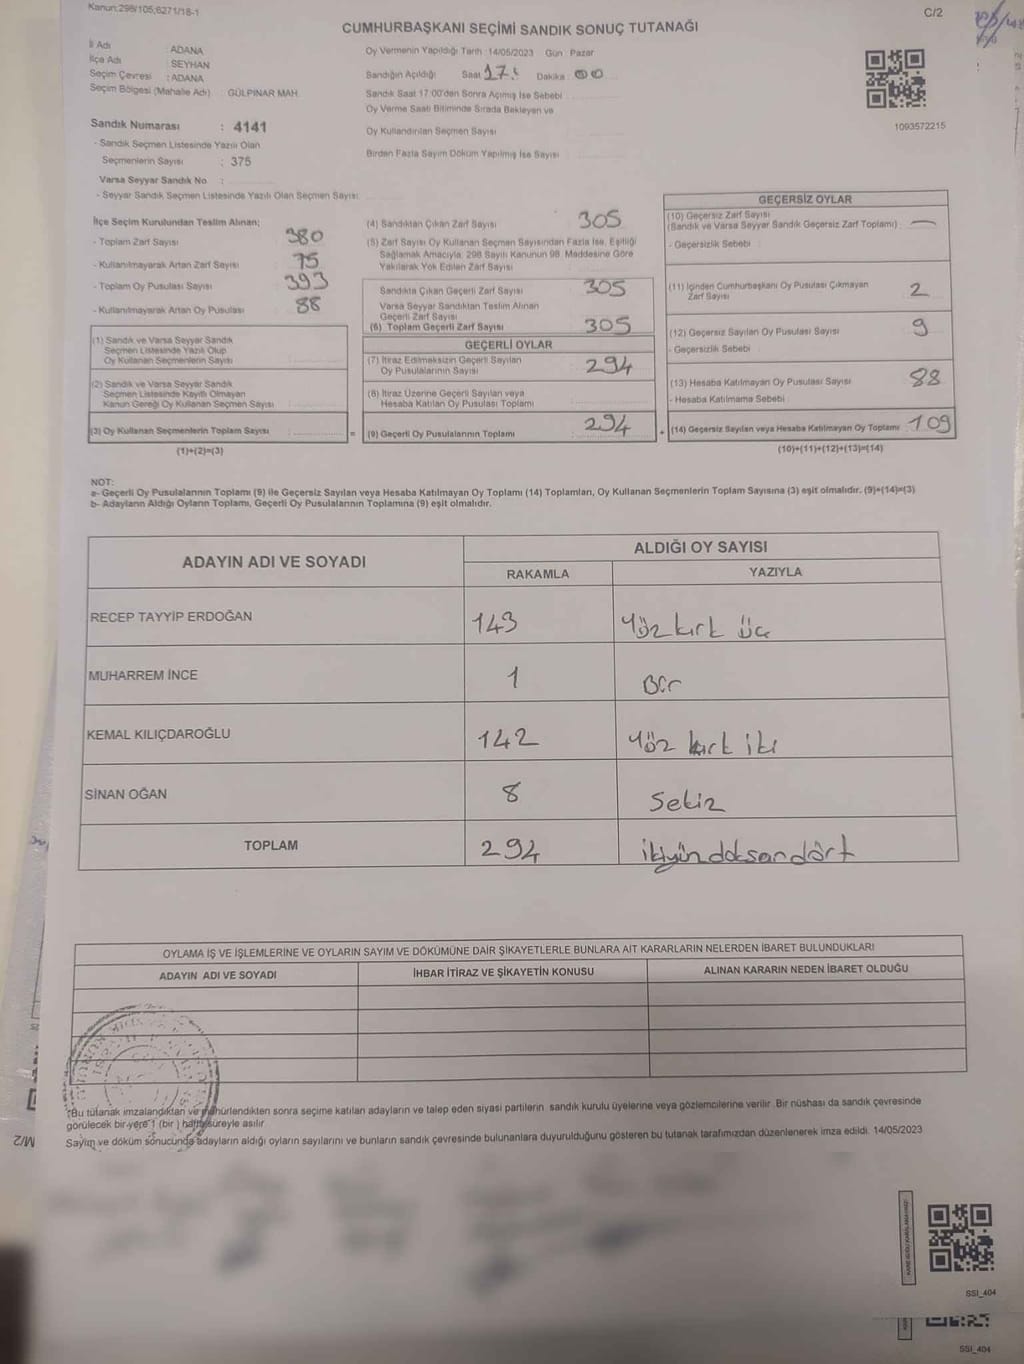 Kanun:298/105;6271/18-1
C/2
CUMHURBAŞKANI SEÇİMİ SANDIK SONUÇ TUTANAĞI
İl Adı : ADANA
İlçe Adı : SEYHAN
Seçim Çevresi : ADANA
Seçim Bölgesi (Mahalle Adı) GÜLPINAR MAH.
Sandık Numarası : 4141
- Sandık Seçmen Listesinde Yazılı Olan
Seçmenlerin Sayısı : 375
Varsa Seyyar Sandık No :
- Seyyar Sandık Seçmen Listesinde Yazılı Olan Seçmen Sayısı:
Oy Vermenin Yapıldığı Tarih :14/05/2023 Gün : Pazar
Sandığın Açıldığı Saat 17: Dakika : 00
Sandık Saat 17:00'den Sonra Açılmış İse Sebebi
Oy Verme Saati Bitiminde Sırada Bekleyen ve
Oy Kullandırılan Seçmen Sayısı
Birden Fazla Sayım Döküm Yapılmış İse Sayısı
1093572215
İlçe Seçim Kurulundan Teslim Alınan;
- Toplam Zarf Sayısı 380
- Kullanılmayarak Artan Zarf Sayısı 75
- Toplam Oy Pusulası Sayısı 393
- Kullanılmayarak Artan Oy Pusulası 88
(1) Sandık ve Varsa Seyyar Sandık
Seçmen Listesinde Yazılı Olup
Oy Kullanan Seçmenlerin Sayısı
(2) Sandık ve Varsa Seyyar Sandık
Seçmen Listesinde Kayıtlı Olmayan
Kanun Gereği Oy Kullanan Seçmen Sayısı
(3) Oy Kullanan Seçmenlerin Toplam Sayısı
(1)+(2)=(3)
(4) Sandıktan Çıkan Zarf Sayısı 305
(5) Zarf Sayısı Oy Kullanan Seçmen Sayısından Fazla İse, Eşitliği
Sağlamak Amacıyla, 298 Sayılı Kanunun 98. Maddesine Göre
Yakılarak Yok Edilen Zarf Sayısı
Sandıkta Çıkan Geçerli Zarf Sayısı 305
Varsa Seyyar Sandıktan Teslim Alınan
Geçerli Zarf Sayısı
(6) Toplam Geçerli Zarf Sayısı 305
GEÇERLİ OYLAR
(7) İtiraz Edilmeksizin Geçerli Sayılan
Oy Pusulalarının Sayısı 294
(8) İtiraz Üzerine Geçerli Sayılan veya
Hesaba Katılan Oy Pusulası Toplamı
= (9) Geçerli Oy Pusulalarının Toplamı 294
GEÇERSİZ OYLAR
(10) Geçersiz Zarf Sayısı
(Sandık ve Varsa Seyyar Sandık Geçersiz Zarf Toplamı) : —
- Geçersizlik Sebebi
(11) İçinden Cumhurbaşkanı Oy Pusulası Çıkmayan
Zarf Sayısı 2
(12) Geçersiz Sayılan Oy Pusulası Sayısı 9
- Geçersizlik Sebebi
(13) Hesaba Katılmayan Oy Pusulası Sayısı 88
- Hesaba Katılmama Sebebi
+ (14) Geçersiz Sayılan veya Hesaba Katılmayan Oy Toplamı : 109
(10)+(11)+(12)+(13)=(14)
NOT:
a- Geçerli Oy Pusulalarının Toplamı (9) ile Geçersiz Sayılan veya Hesaba Katılmayan Oy Toplamı (14) Toplamları, Oy Kullanan Seçmenlerin Toplam Sayısına (3) eşit olmalıdır. (9)+(14)=(3)
b- Adayların Aldığı Oyların Toplamı, Geçerli Oy Pusulalarının Toplamına (9) eşit olmalıdır.
ADAYIN ADI VE SOYADI
ALDIĞI OY SAYISI
RAKAMLA YAZIYLA
RECEP TAYYİP ERDOĞAN 143 Yüz kırk üç
MUHARREM İNCE 1 Bir
KEMAL KILIÇDAROĞLU 142 Yüz kırk iki
SİNAN OĞAN 8 Sekiz
TOPLAM 294 ikiyüzdoksandört
OYLAMA İŞ VE İŞLEMLERİNE VE OYLARIN SAYIM VE DÖKÜMÜNE DAİR ŞİKAYETLERLE BUNLARA AİT KARARLARIN NELERDEN İBARET BULUNDUKLARI
ADAYIN ADI VE SOYADI İHBAR İTİRAZ VE ŞİKAYETİN KONUSU ALINAN KARARIN NEDEN İBARET OLDUĞU
*Bu tutanak imzalandıktan ve mühürlendikten sonra seçime katılan adayların ve talep eden siyasi partilerin sandık kurulu üyelerine veya gözlemcilerine verilir. Bir nüshası da sandık çevresinde
görülecek bir yere 1 (bir ) hafta süreyle asılır.
Sayım ve döküm sonucunda adayların aldığı oyların sayılarını ve bunların sandık çevresinde bulunanlara duyurulduğunu gösteren bu tutanak tarafımızdan düzenlenerek imza edildi. 14/05/2023
SSI_404
SSI_404
M/2